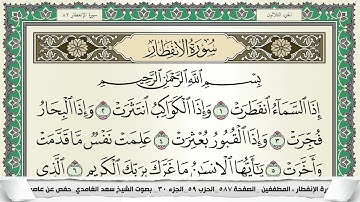 الجزء الثلاثون
سورة الإنفطار ٨٢
سُورَةُ الِانفِطَارِ
بِسْمِ ٱللَّهِ ٱلرَّحْمَٰنِ ٱلرَّحِيمِ
إِذَا ٱلسَّمَآءُ ٱنفَطَرَتْ ١ وَإِذَا ٱلْكَوَاكِبُ ٱنتَثَرَتْ ٢ وَإِذَا ٱلْبِحَارُ
فُجِّرَتْ ٣ وَإِذَا ٱلْقُبُورُ بُعْثِرَتْ ٤ عَلِمَتْ نَفْسٌ مَّا قَدَّمَتْ
وَأَخَّرَتْ ٥ يَٰٓأَيُّهَا ٱلْإِنسَٰنُ مَا غَرَّكَ بِرَبِّكَ ٱلْكَرِيمِ ٦ ٱلَّذِى
ة الإنفطار ، المطففين الصفحة ٥٨٧ الحزب ٥٩ الجزء ٣٠ بصوت الشيخ سعد الغامدي حفص عن عاصم